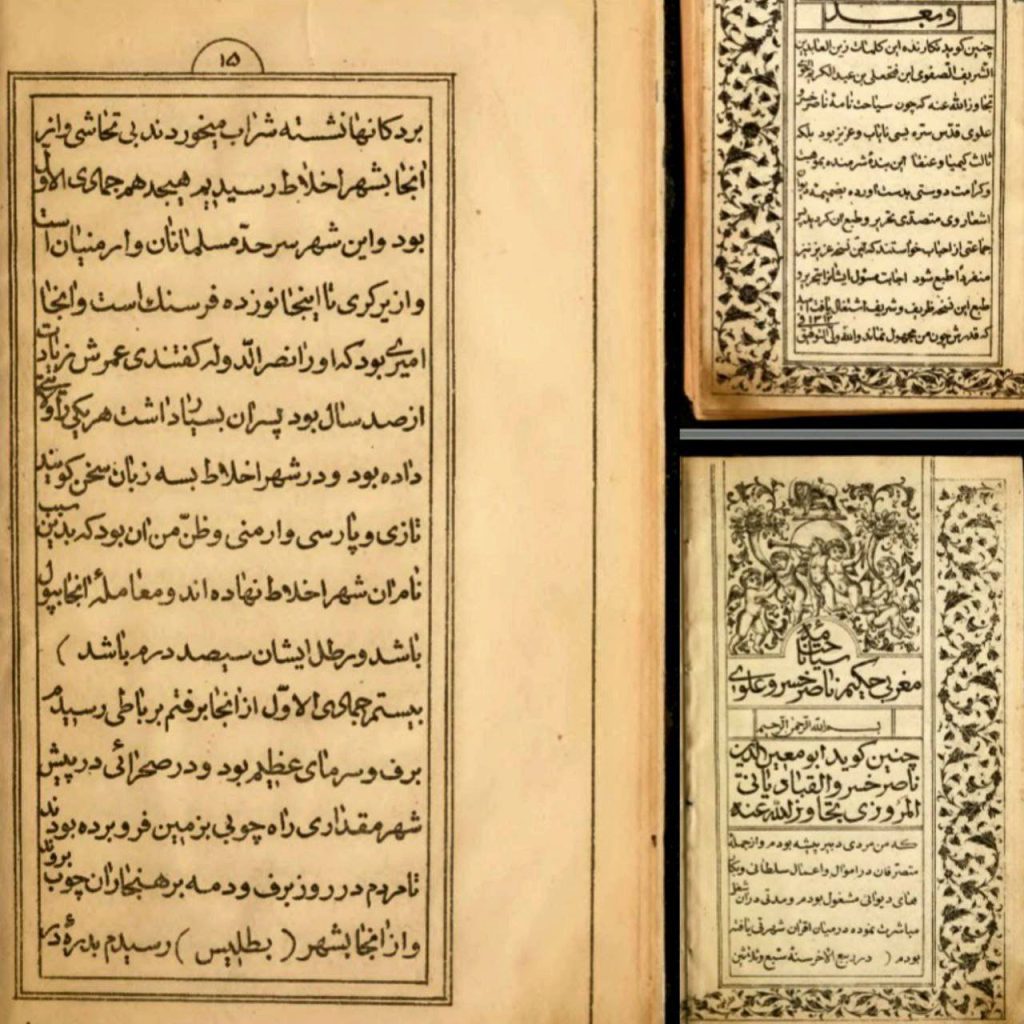 ۱۵
بردکانها نشسته شراب میخوردند بی تحاشی واز
آنجا بشهر اخلاط رسیدیم هیجدهم جمادی الاول
بود واین شهر سرحد مسلمانان وارمنیان است
و از برکری تا اینجا نوزده فرسنک است وآنجا
امیری بود که اورا نصر الدوله کفتندی عمرش زیادت
از صد سال بود پسران بسیار داشت هریکی را ولایتی
داده بود ودر شهر اخلاط بسه زبان سخن کویند
تازی و پارسی وارمنی وظنّ من آن بود که بدین سبب
نام آن شهر اخلاط نهاده اند ومعاملهٔ آنجا بپول
باشد ورطل ایشان سیصد درم باشد )
بیستم جمادی الاوّل از آنجا برفتم برباطی رسیدم
برف وسرمای عظیم بود ودر صحرائی در پیش
شهر مقداری راه چوبی بزمین فرو برده بودند
تا مردم در روز برف ودمه بر هنجار آن چوب بروند
واز آنجا بشهر ( بطلیس ) رسیدم بدرهٔ در
وبعد
چنین کوید نکارنده این کلمات زین العابدین
الشریف الصفوی ابن فتحعلی بن عبد الکریم
تجاوز الله عنه که چون سیاحت نامهٔ ناصر خسرو
علوی قدّس سرّه بسی نایاب وعزیز بود بلکه
ثالث کیمیا وعنقا این بندهٔ شرمنده
وکرامت دوستی بدست آورده بضمیمه
اشعار وی متصدّی تحریر وطبع آن کردید
جماعتی از احباب خواستند که این نسخه عزیز نیز
منفرداً طبع شود اجابت مسؤل ایشانرا
طبع این نسخه ظریف وشریف اشتغال یافت ۱۳۱۲
که قدرش چون من مجهول نماند والله ولی التوفیق
سیاحت نامه
حکیم ناصر خسرو علوی
بسم الله الرحمن الرحیم
چنین کوید ابو معین الدین
ناصر خسرو القبادیانی
المروزی تجاوز الله عنه
که من مردی دبیر پیشه بودم واز جملهٔ
متصرفان در اموال واعمال سلطانی وبکار
های دیوانی مشغول بودم ومدتی در آن شغل
مباشرت نموده در میان اقران شهرتی یافته
بودم ( در ربیع الآخر سنهٔ سبع وثلاثین